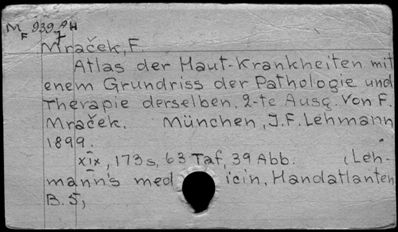 M 939 9H
F 7
Mraček, F.
Atlas der Haut-Krankheiten mit
enem Grundriss der Pathologie und
Therapie derselben. 2-te Ausg. Von F.
Mraček. München, J.F. Lehmann
1899.
xix, 173 s, 63 Taf, 39 Abb. (Leh-
mann's med icin. Handatlanten
B. 5)